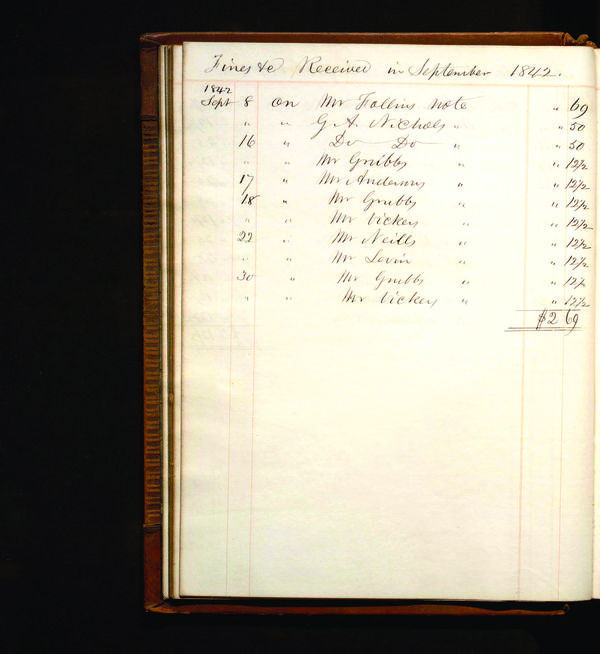 Fines &c Received in September 1842.
1842
Sept 8 on Mr Follins Note " 69
" " G. A. Nichols " " 50
16 " Do Do " " 50
" " Mr Gribbs " " 12 1/2
17 " Mr Andersons " " 12 1/2
18 " Mr Grubbs " " 12 1/2
" " Mr Vickers " " 12 1/2
22 " Mr Neills " " 12 1/2
" " Mr Levin " " 12 1/2
30 " Mr Grubbs " " 12 1/2
" " Mr Vickers " " 12 1/2
$2 69